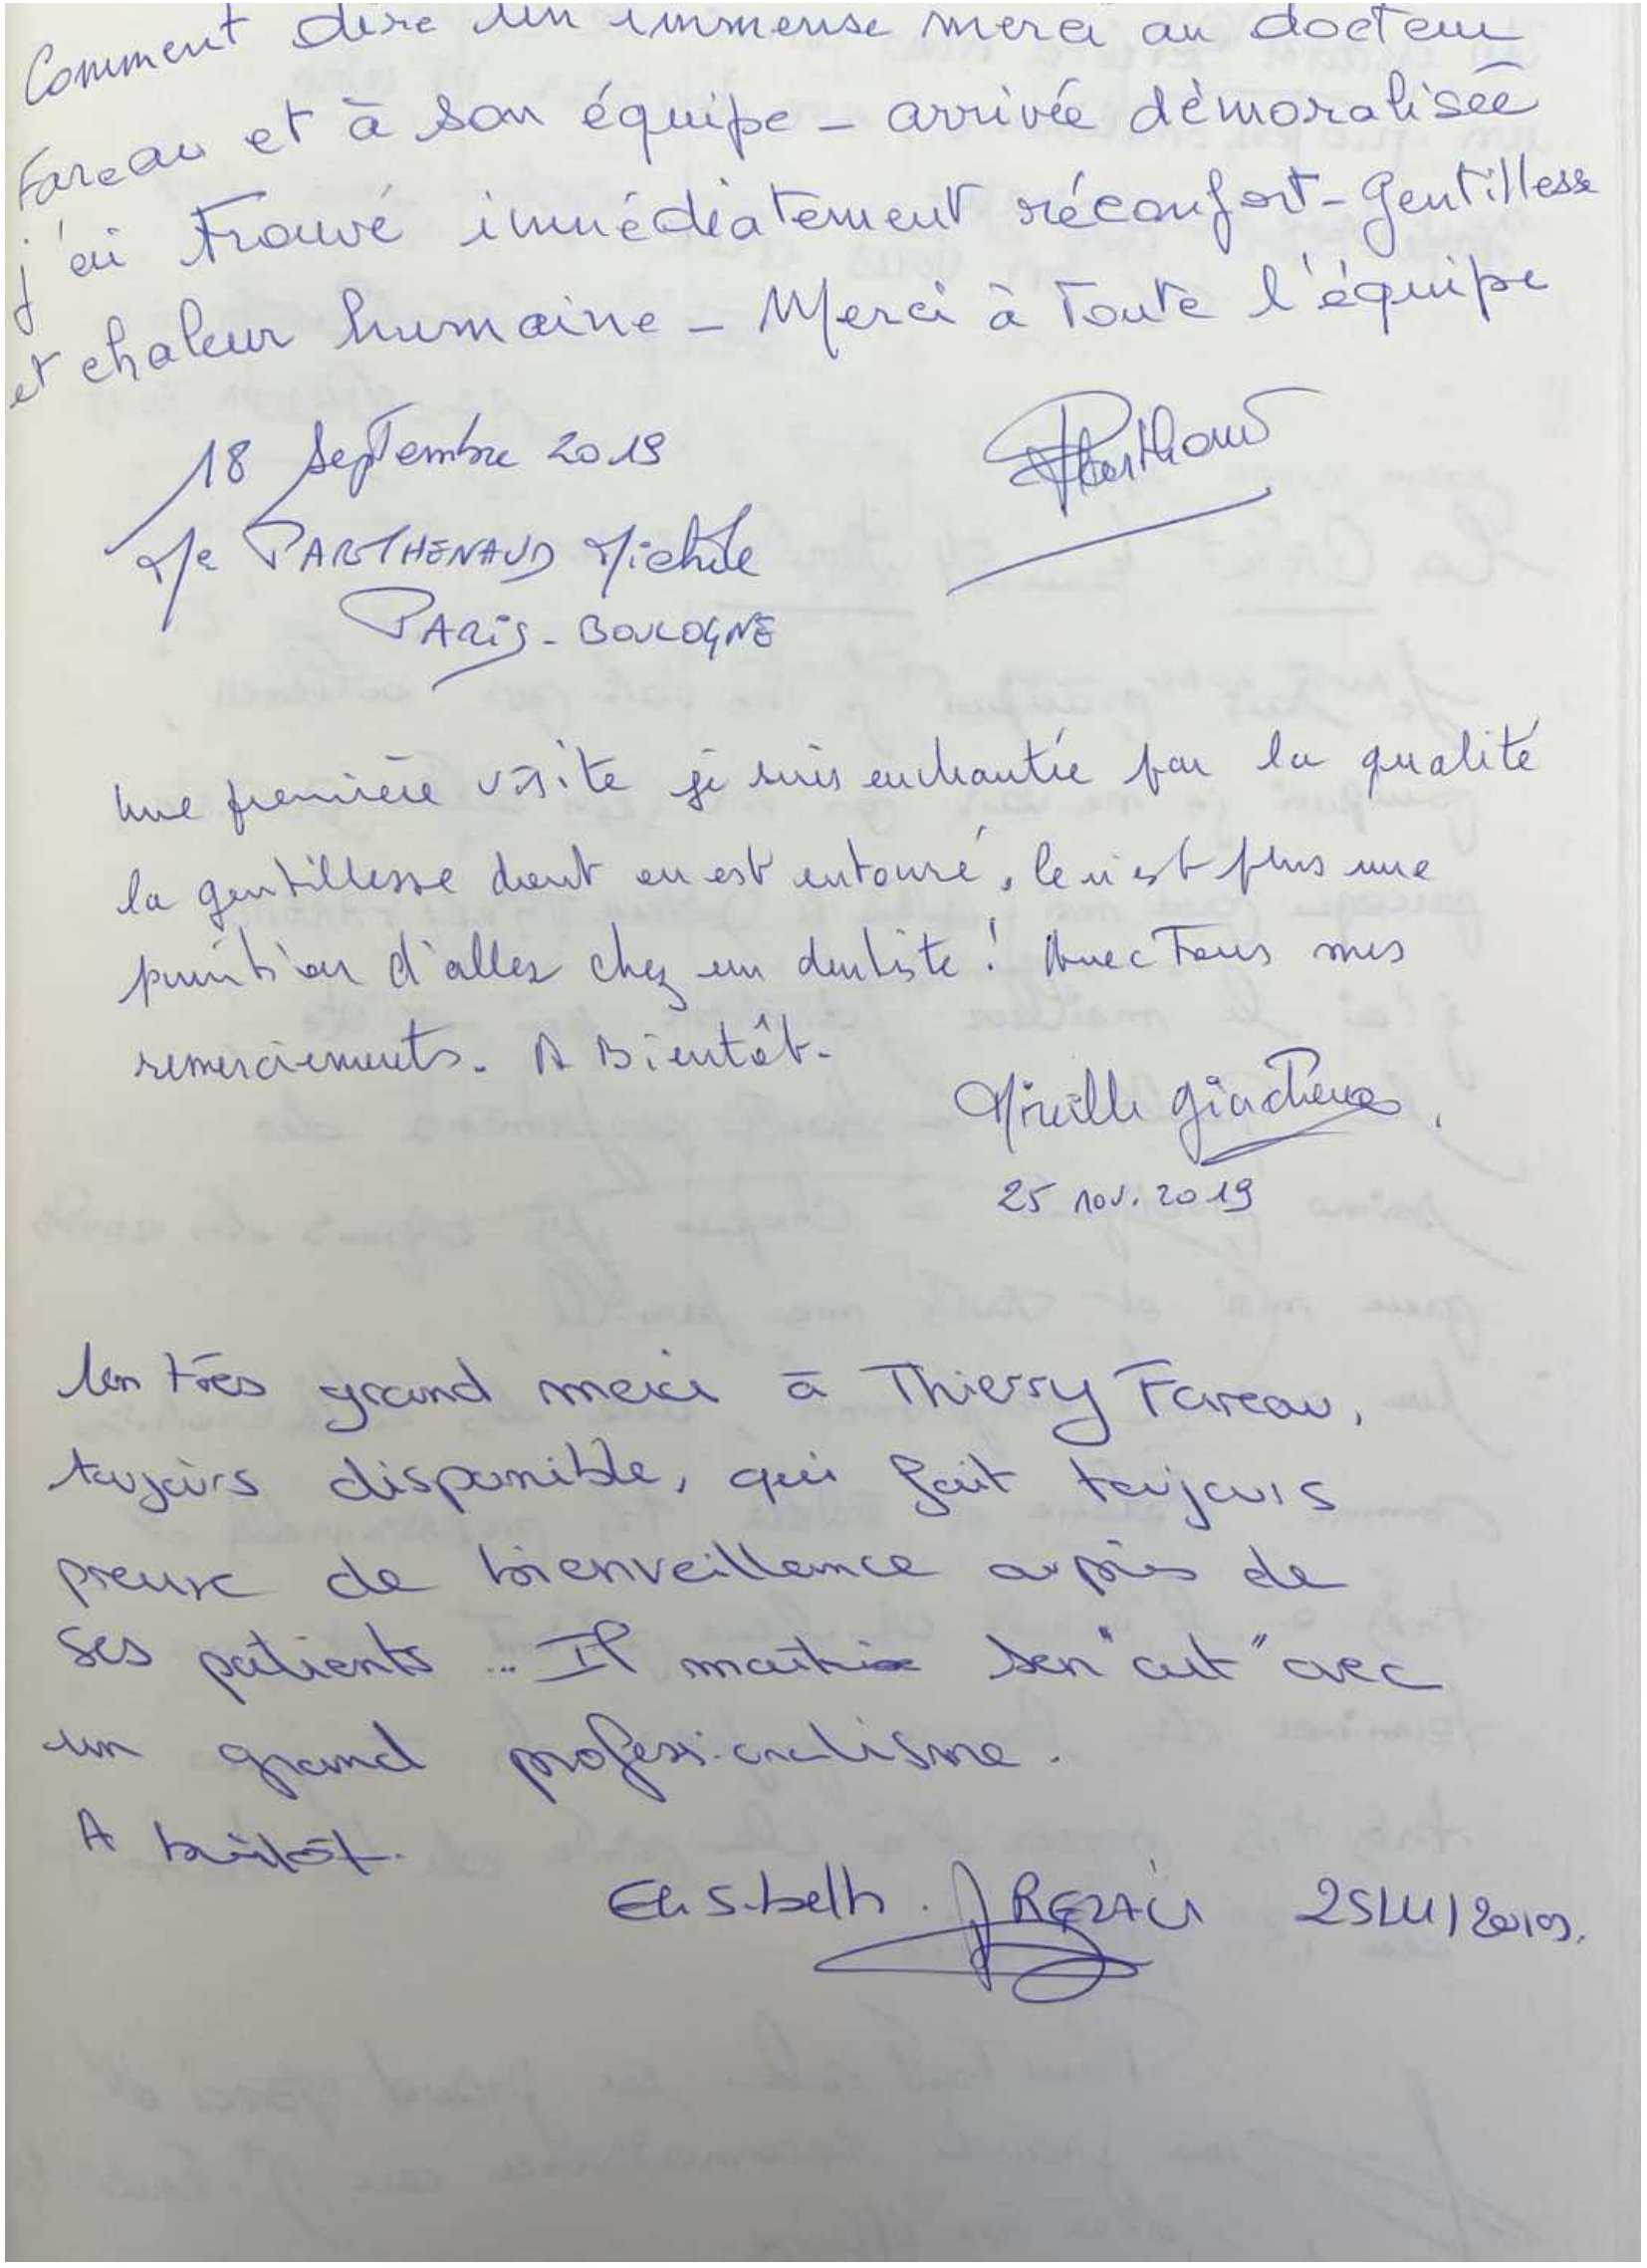 Comment dire un immense merci au docteur
Fareau et à son équipe - arrivée démoralisée
j'ai trouvé immédiatement réconfort - Gentillesse
et chaleur humaine - Merci à toute l'équipe
18 Septembre 2019
Me PARTHENAUD Michèle
PARIS - BOULOGNE
Une première visite je suis enchantée par la qualité
la gentillesse dont on est entouré, ce n'est plus une
punition d'aller chez un dentiste ! Avec Tous mes
remerciements. A Bientôt.
Mireille
25 nov. 2019
Un très grand merci à Thierry Fareau,
toujours disponible, qui fait toujours
preuve de bienveillance auprès de
ses patients... Il maitrise son "art" avec
un grand professionalisme.
A bientôt.
Elisabeth 2019.